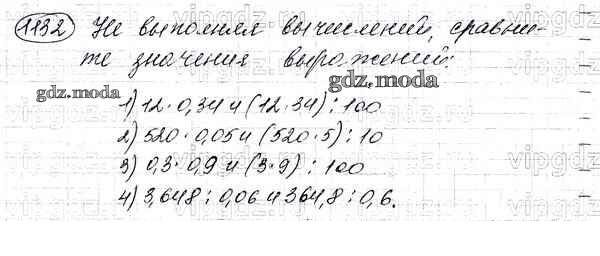 1132 Не выполняя вычислений, сравни-
те значения выражений:
gdz.moda
gdz.moda
1) 12 · 0,34 и (12 · 34) : 100
2) 520 · 0,05 и (520 · 5) : 10
3) 0,3 · 0,9 и (3 · 9) : 100
4) 3,648 : 0,06 и 364,8 : 0,6.